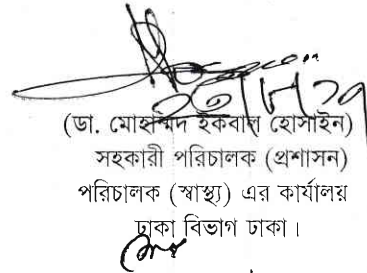 (ডা. মোহাম্মদ ইকবাল হোসাইন)
সহকারী পরিচালক (প্রশাসন)
পরিচালক (স্বাস্থ্য) এর কার্যালয়
ঢাকা বিভাগ ঢাকা।